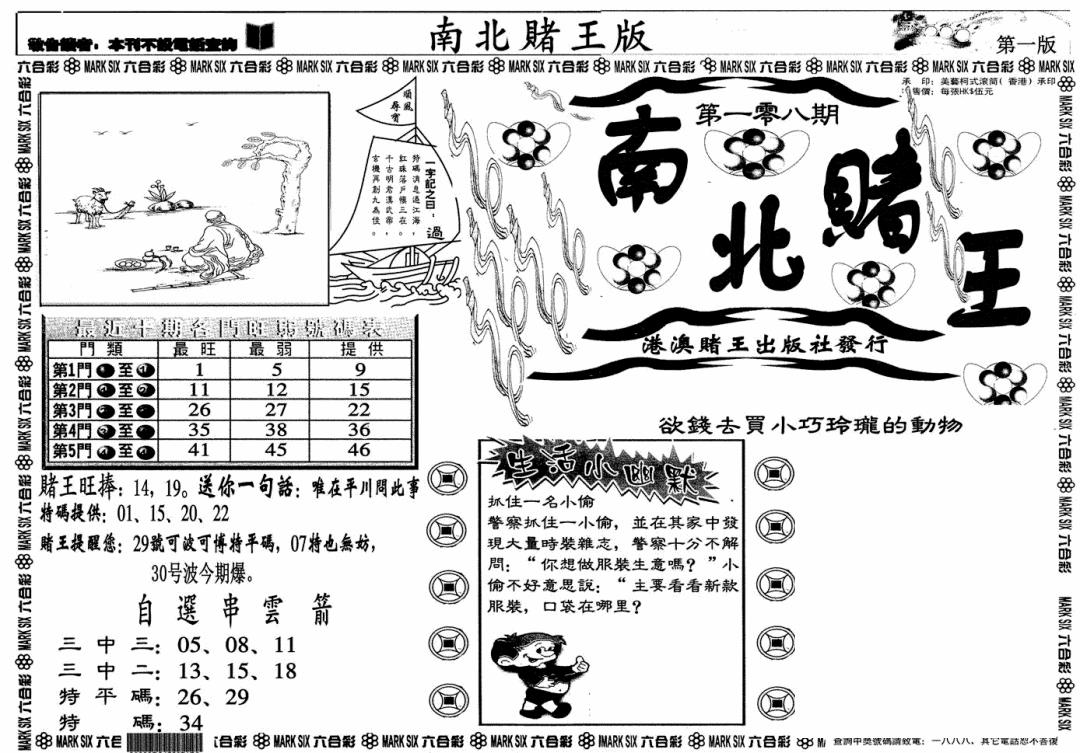 敬告讀者：本刊不設電話查詢
南北賭王版
第一版
六合彩 MARK SIX 六合彩 MARK SIX 六合彩 MARK SIX 六合彩 MARK SIX 六合彩 MARK SIX 六合彩 MARK SIX 六合彩 MARK SIX 六合彩 MARK SIX 六合彩 MARK SIX 六合彩 MARK SIX
承 印：美藝柯式滾筒(香港)承印
售價：每張HK$伍元
第一零八期
南北賭王
港澳賭王出版社發行
順風尋寶
一字記之曰：過
特碼消息過江海，
紅珠落戶條三在。
千古明君漢武帝，
玄機再創九為佳。
最近十期各門旺弱號碼表
門類 最旺 最弱 提供
第1門 至 1 5 9
第2門 至 11 12 15
第3門 至 26 27 22
第4門 至 35 38 36
第5門 至 41 45 46
賭王旺捧：14，19。送你一句話：唯在平川問此事
特碼提供：01、15、20、22
賭王提醒您：29號可波可博特平碼，07特也無妨，
30号波今期爆。
自選串雲箭
三中三：05、08、11
三中二：13、15、18
特平碼：26、29
特碼：34
欲錢去買小巧玲瓏的動物
生活小幽默
抓住一名小偷
警察抓住一小偷，並在其家中發
現大量時裝雜志，警察十分不解
問：“你想做服裝生意嗎？”小
偷不好意思說：“主要看看新款
服裝，口袋在哪里？
MARK SIX 六合彩 MARK SIX 六合彩 MARK SIX 六合彩 MARK SIX 六合彩 MARK SIX 六合彩 MARK SIX
查詢中獎號碼請致電：一八八八，其它電話恕不答復